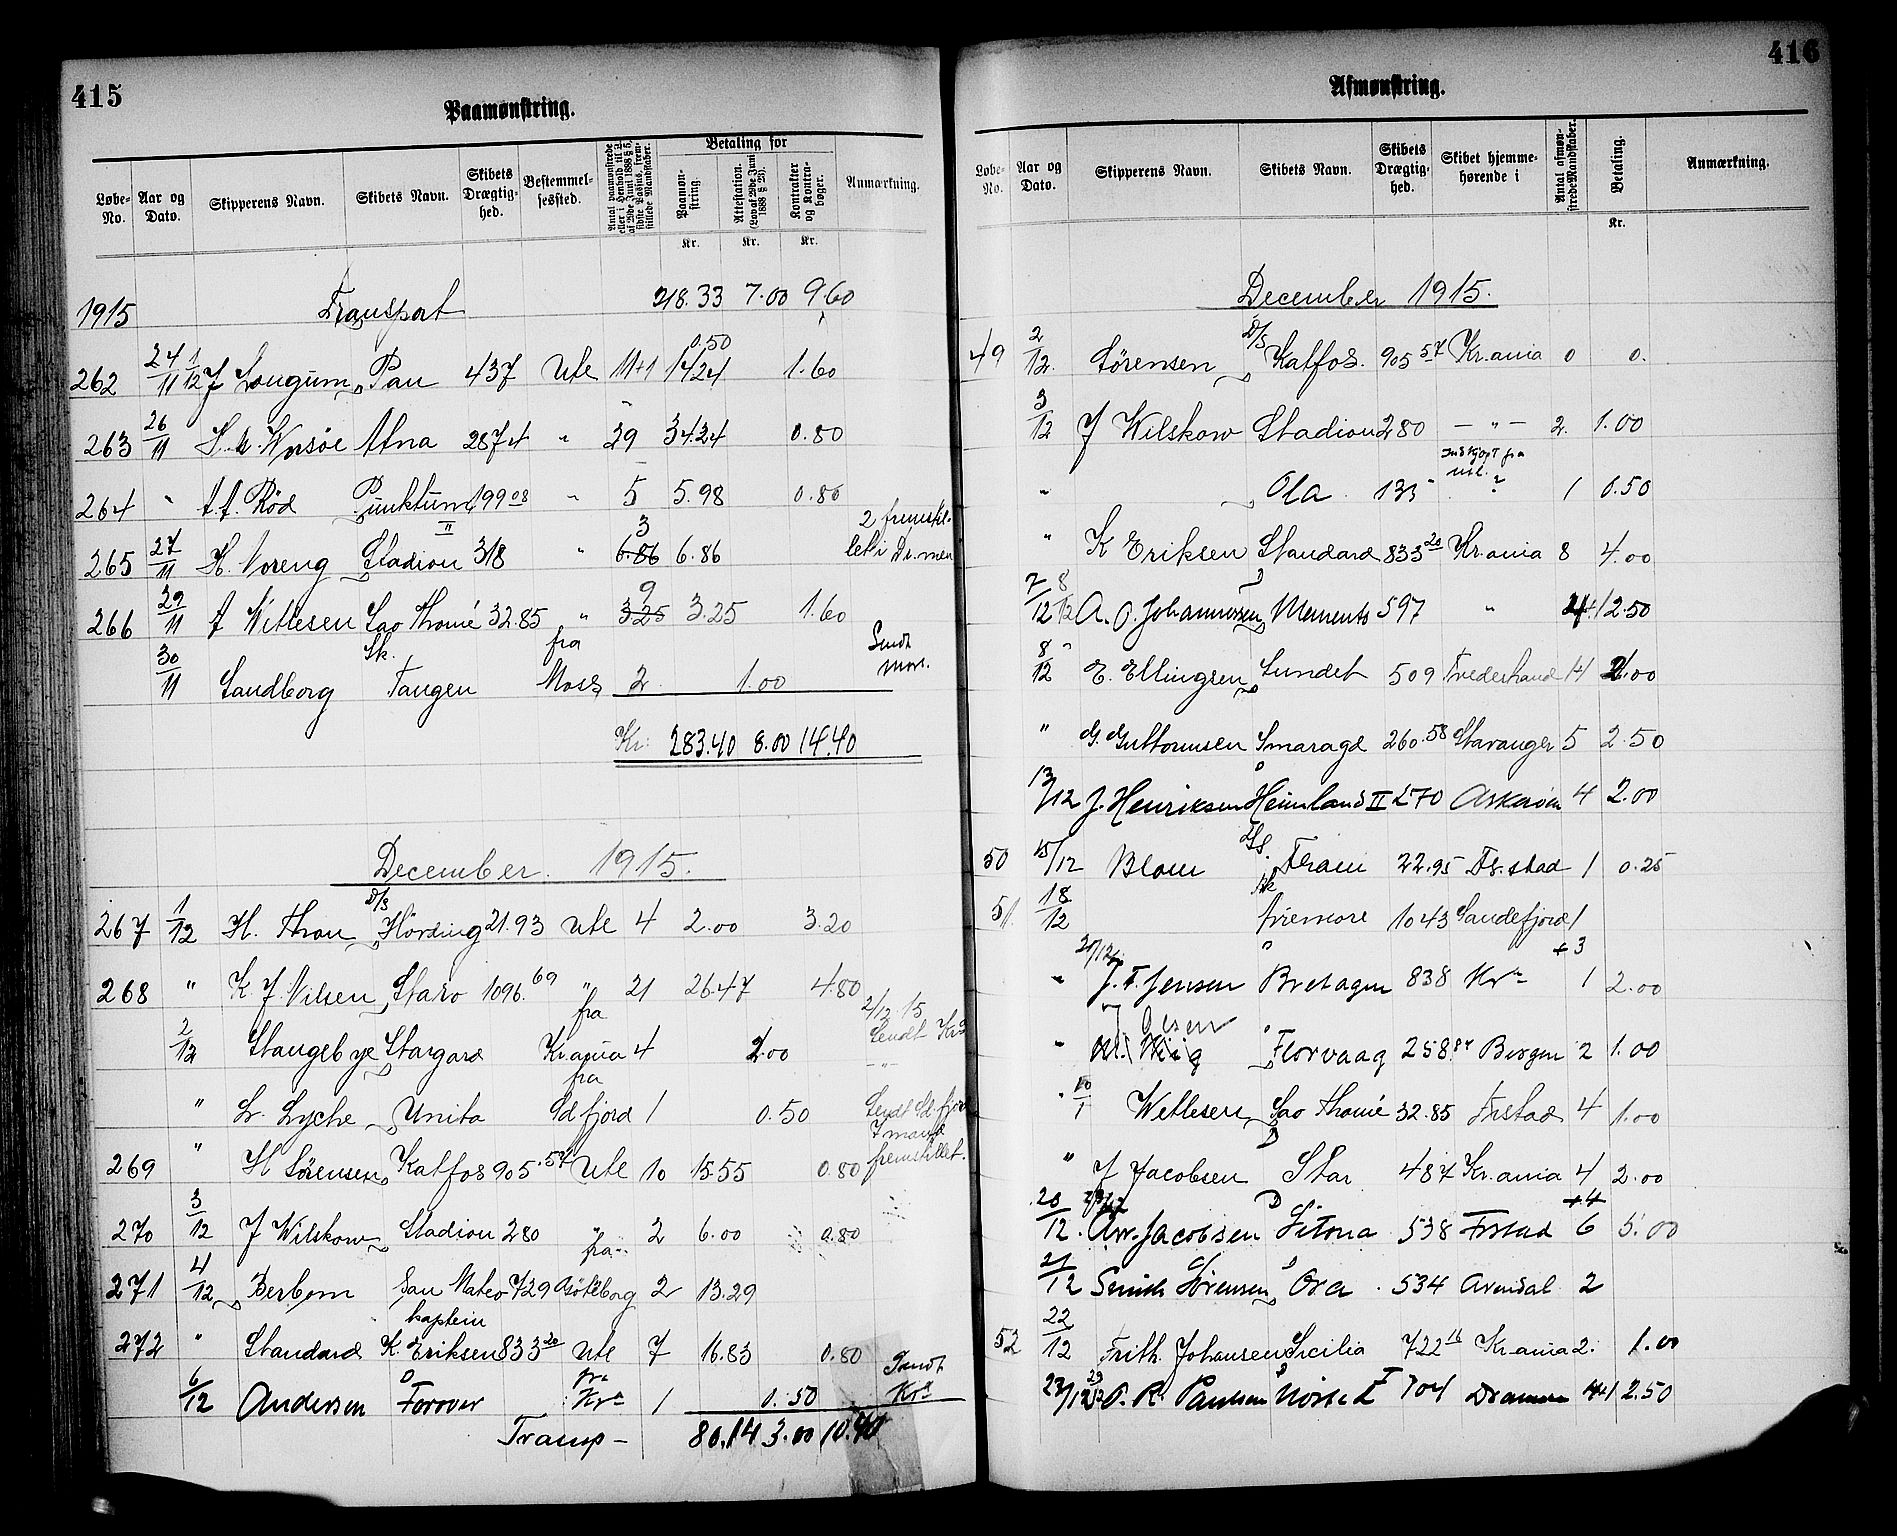 415
Paamønstring.
Løbe-No. Aar og Dato. Skipperens Navn. Skibets Navn. Skibets Drægtighed. Bestemmelsessted. Antal paamønstrede eller i Henhold til § af 29de Juni 1888 § 5, sidste Passus, fremstillede Mandskaber. Betaling for Paamønstring. Attestation. (Lov af 29de Juni 1888 § 28). Kontrakter og Kontrabøger. Anmærkning.
Kr. Kr. Kr.
1915 Transport 218.33 7.00 9.60
262 24/11 1/12 J Longum Pan 437 Ute 11+1 0,50 14.24 1.60
263 26/11 Atna 2874 " 29 34.24 0.80
264 " A A. Rød Punktum 199 08 " 5 5.98 0.80
265 27/11 H. Noreng Stadion II 318 " 3 6.86 6.86 2 fremstillet i Dr.men
266 29/11 J Wetlesen Sao Thomé 32.85 " 9 3.25 3.25 1.60
30/11 Sandborg Sk. Tangen fra Moss 2 1.00 Sendt Moss.
Kr: 283.40 8.00 14.40
December 1915.
267 1/12 H. Thron D/S Hörding 21.93 Ute 4 2.00 3.20
268 " K. J. Nilsen Staro 1096.69 " 21 26.47 4.80
2/12 Stangebye Stargard fra Kr.ania 4 2.00 2/12 15 Sendt Kra
" Lr. Lyche Unita fra Sdfjord 1 0.50 Sendt Sdfjord
269 " H Sörensen Katfos 905.57 Ute 10 15.55 0.80 7 mand fremstillet.
270 3/12 J Wilskow Stadion 280 " 2 6.00 0.80
271 4/12 Berbom San Mateo 729 fra Göteborg 2 13.29
272 " Standard kaptein K. Eriksen 833 20 Ute 7 16.83 0.80
6/12 Andersen Forover fra Kra 1 0.50 Sendt Kra
Transp- 80.14 3.00 10.40
416
Afmønstring.
Løbe-No. Aar og Dato. Skipperens Navn. Skibets Navn. Skibets Drægtighed. Skibet hjemmehørende i Antal afmønstrede Mandskaber. Betaling. Anmærkning.
Kr.
December 1915.
49 2/12. Sörensen D/S Katfos. 905 57 Kr.ania 0 0.
3/12 J Wilskow Stadion 280 — " — 2. 1.00
" Ola 135 Indkjøpt fra utl. ? 1 0.50
" K Eriksen Standard 833 20 Kr.ania 8 4.00
7/12 8/12 A. O. Johannessen Memento 597 " 4+1 2.50
8/12 E. Ellingsen Sundet 509 4 2.00
" G. Guttormsen Smaragd 260.58 Stavanger 5 2.50
13/12 J. Henriksen Heimland II 270 Askerøen 4 2.00
50 15/12 Blom D/S. Fram 22.95 Fr.stad 1 0.25
51. 18/12 Sk 1043 Sandefjord 1
" 20/12 J. F. Jensen Bretagne 838 Kra +3 1 2.00
" Olsen Florvaag 258.84 Bergen 2 1.00
" 10/1 Wetlesen Sao Thomé 32.85 Frstad 4 1.00
" J Jacobsen D Star 487 Kr.ania 4 2.00
20/12. Arv. Jacobsen D Sitona 538 Frstad +4 6 5.00
21/12 Sörensen Ora 534 Arendal 2
52 22/12 Frith. Johansen Sicilia 722 16 Kr.ania 2. 1.00
23/12 P. R. Paulsen 704 Dramen 4+1 2.50